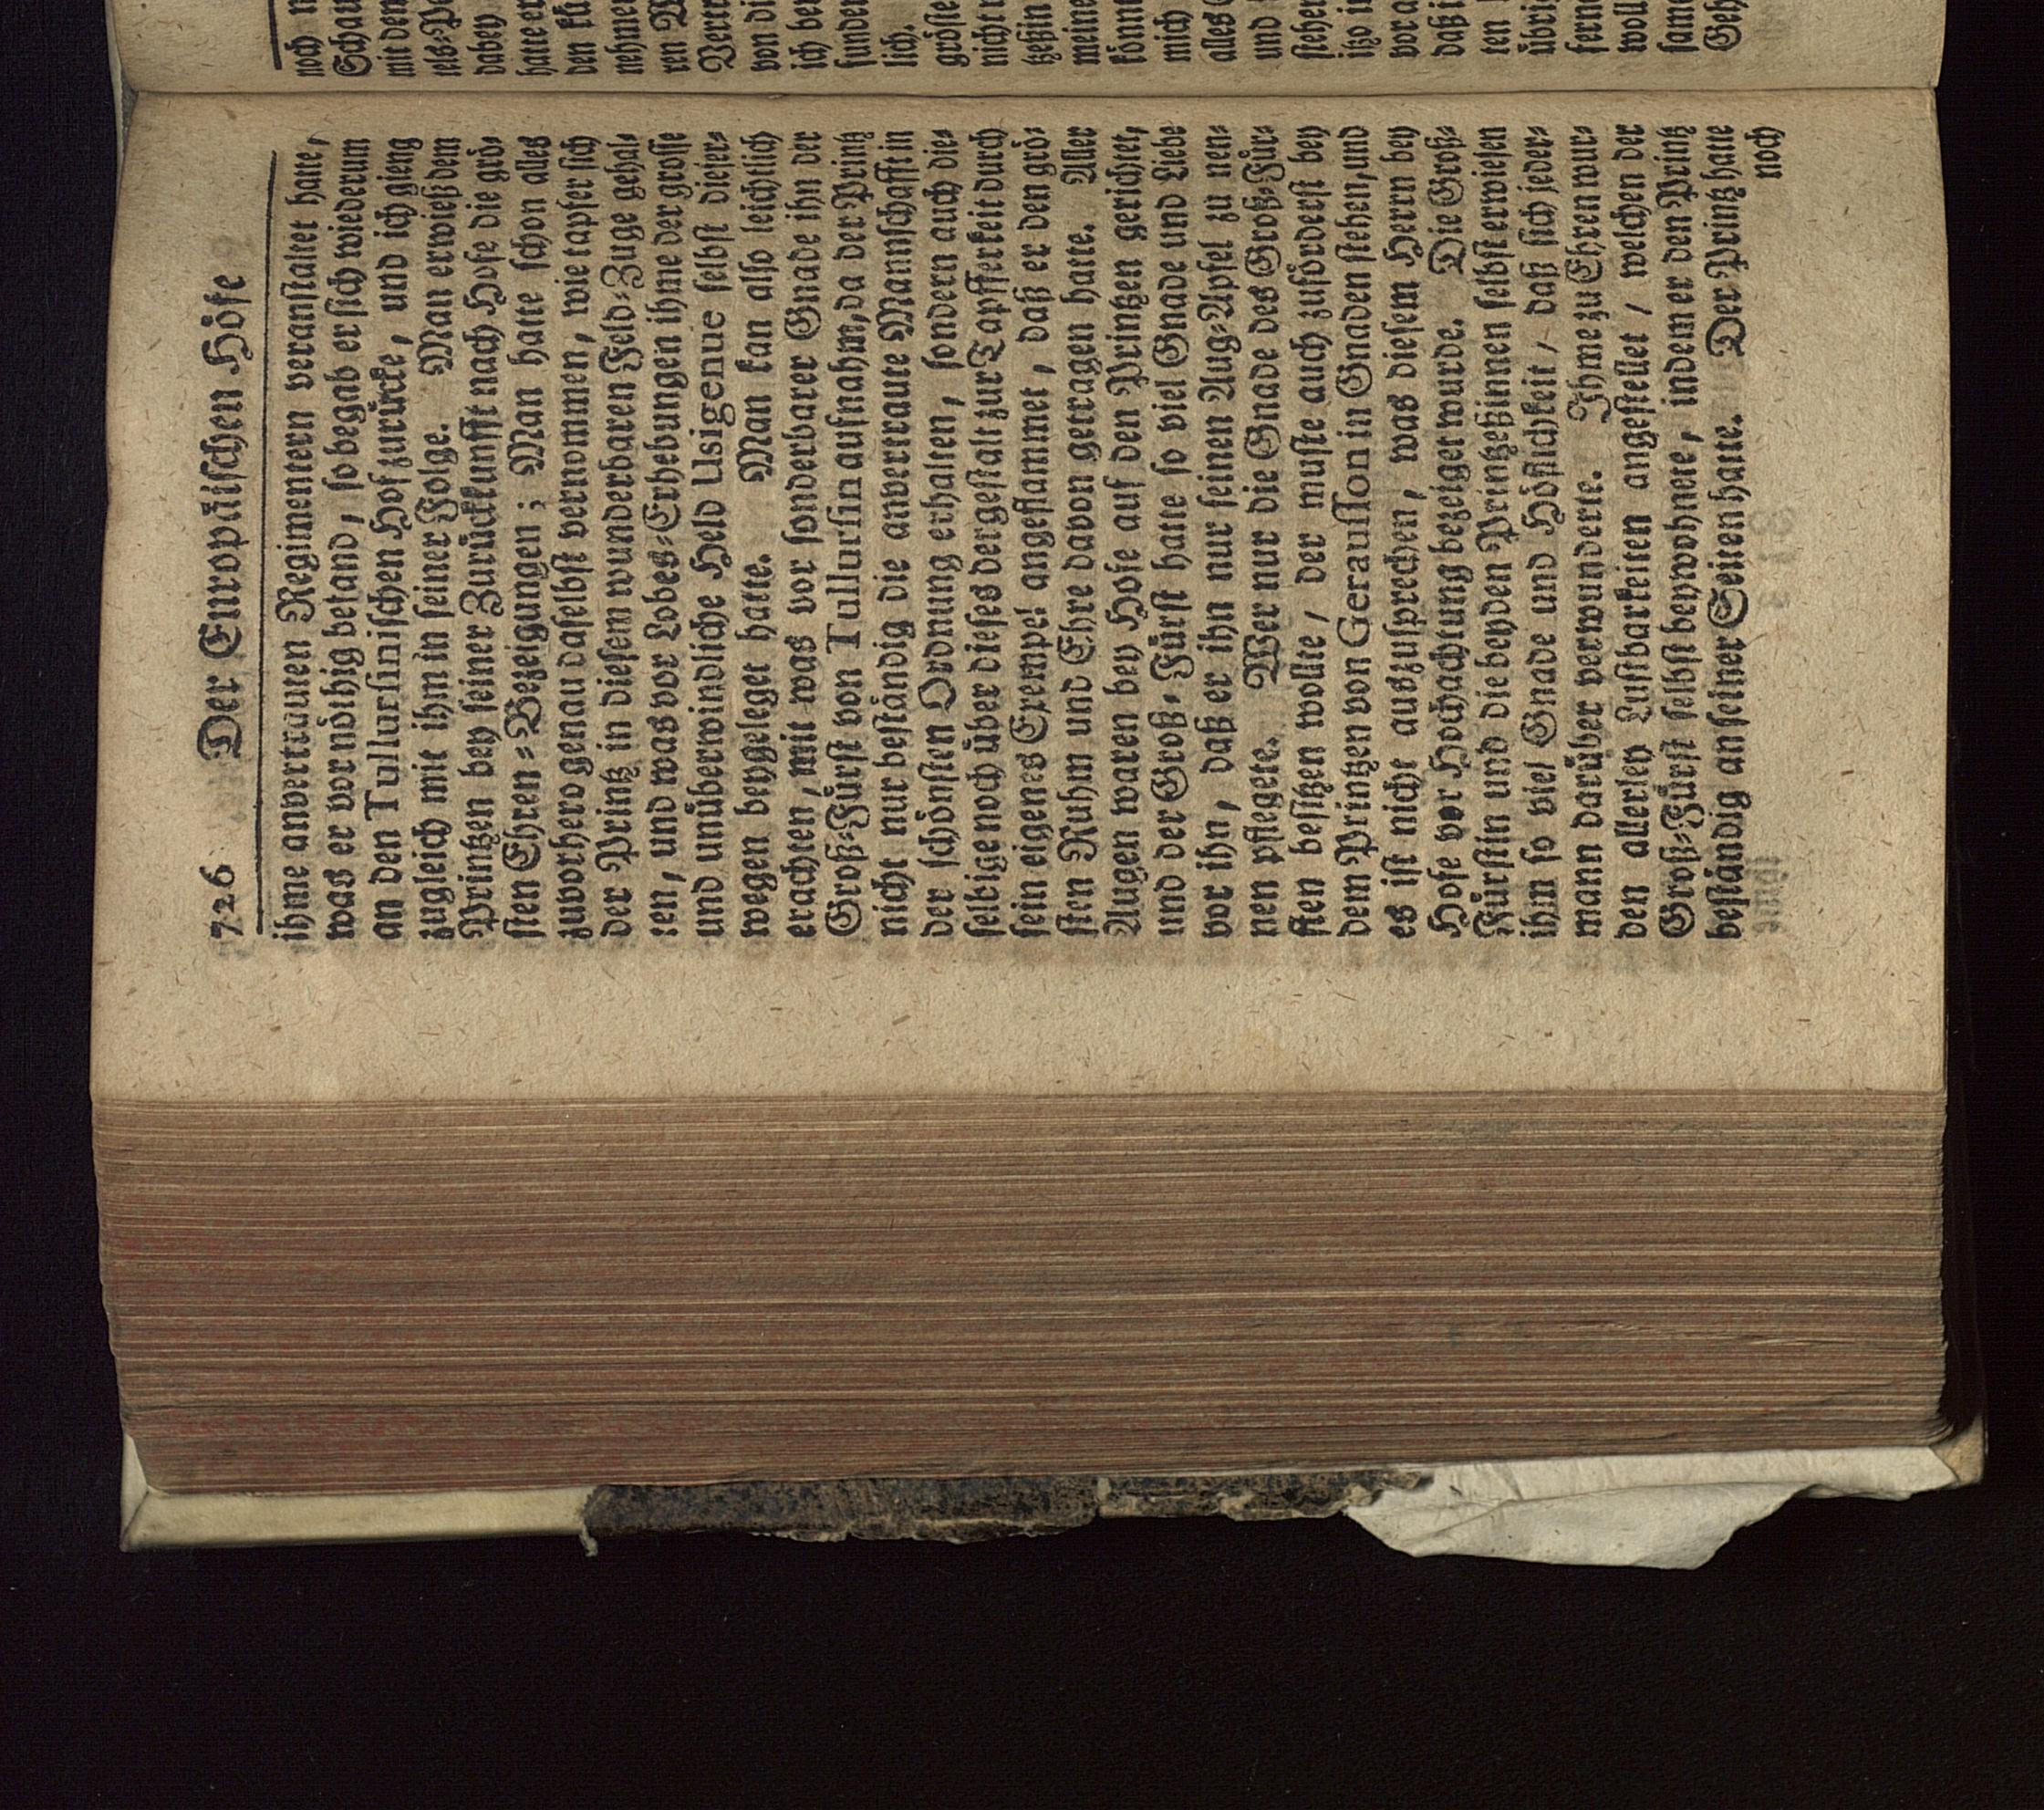 726 Der Europäischen Höfe
ihme anvertrauten Regimentern veranstaltet hatte,
was er vor nöthig befand, so begab er sich wiederum
an den Tullursinischen Hof zurücke, und ich gieng
zugleich mit ihm in seiner Folge. Man erwieß dem
Printzen bey seiner Zurückkunfft nach Hofe die grö-
sten Ehren-Bezeigungen; Man hatte schon alles
zuvorhero genau daselbst vernommen, wie tapfer sich
der Printz in diesem wunderbaren Feld-Zuge gehal-
ten, und was vor Lobes-Erhebungen ihme der grosse
und unüberwindliche Held Usigenue selbst dieser-
wegen beygeleget hatte. Man kan also leichtlich
erachten, mit was vor sonderbarer Gnade ihn der
Groß-Fürst von Tullursin aufnahm, da der Printz
nicht nur beständig die anvertraute Mannschafft in
der schönsten Ordnung erhalten, sondern auch die-
selbige noch über dieses dergestalt zur Tapfferkeit durch
sein eigenes Exempel angeflammet, daß er den grö-
sten Ruhm und Ehre davon getragen hatte. Aller
Augen waren bey Hofe auf den Printzen gerichtet,
und der Groß-Fürst hatte so viel Gnade und Liebe
vor ihn, daß er ihn nur seinen Aug-Apfel zu nen-
nen pflegete. Wer nur die Gnade des Groß-Für-
sten besitzen wollte / der muste auch zuförderst bey
dem Printzen von Gerausson in Gnaden stehen, und
es ist nicht auszusprechen, was diesem Herrn bey
Hofe vor Hochachtung bezeiget wurde. Die Groß-
Fürstin und die beyden Printzeßinnen selbst erwiesen
ihm so viel Gnade und Höflichkeit, daß sich jeder-
mann darüber verwunderte. Ihme zu Ehren wur-
den allerley Lustbarkeiten angestellet / welchen der
Groß-Fürst selbst beywohnete, indem er den Printz
beständig an seiner Seiten hatte. Der Printz hatte
noch